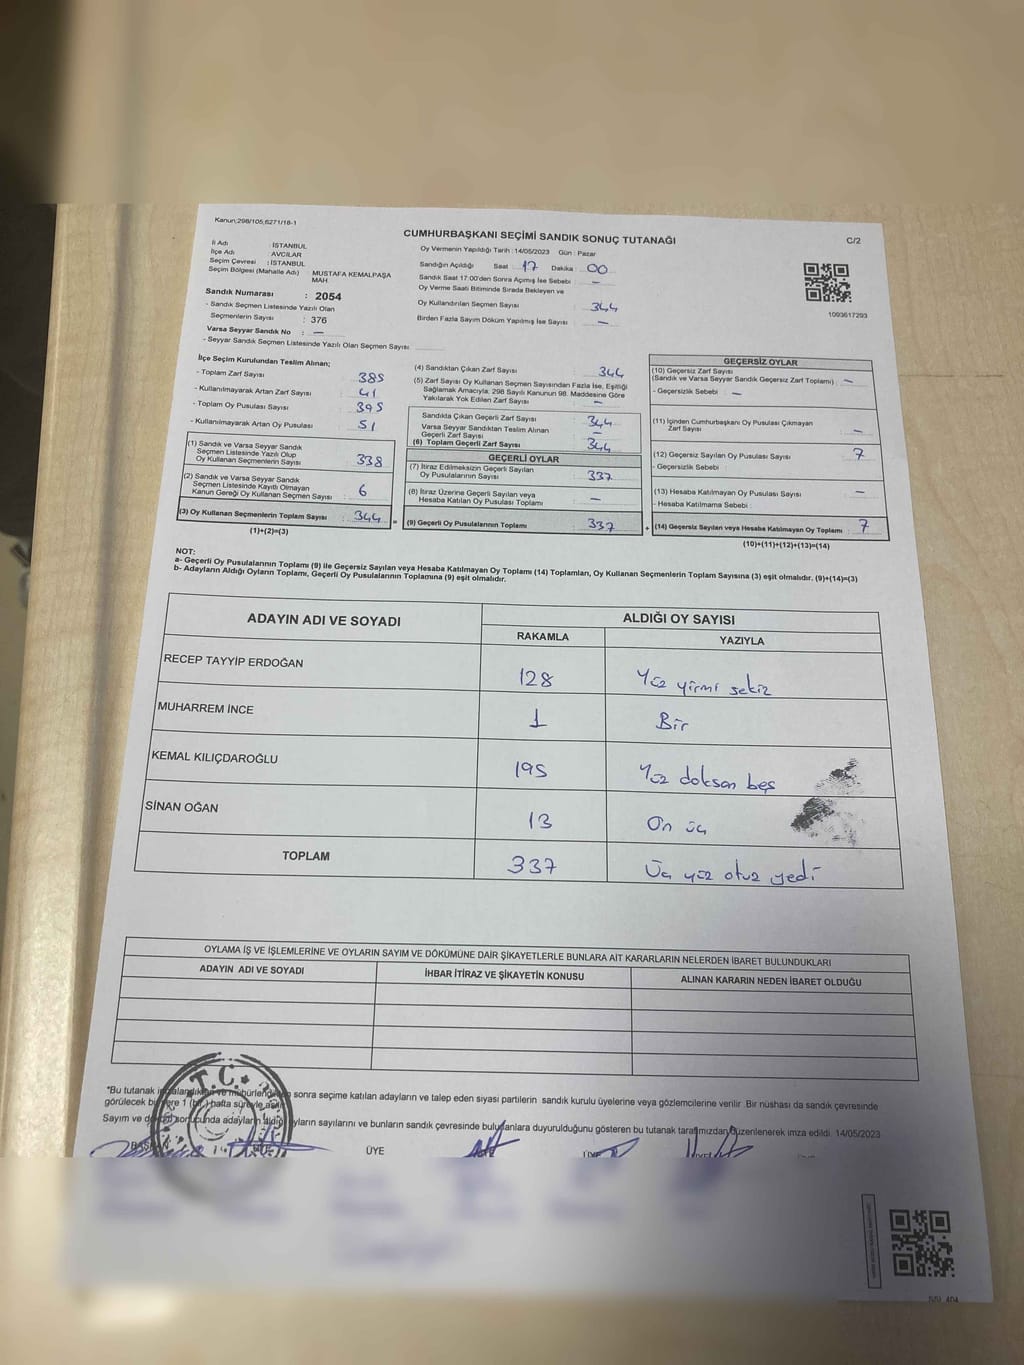 Kanun:298/105,6271/18-1
CUMHURBAŞKANI SEÇİMİ SANDIK SONUÇ TUTANAĞI
C/2
İl Adı : İSTANBUL
İlçe Adı : AVCILAR
Seçim Çevresi : İSTANBUL
Seçim Bölgesi (Mahalle Adı) : MUSTAFA KEMALPAŞA MAH.
Sandık Numarası : 2054
- Sandık Seçmen Listesinde Yazılı Olan
Seçmenlerin Sayısı : 376
Varsa Seyyar Sandık No : —
- Seyyar Sandık Seçmen Listesinde Yazılı Olan Seçmen Sayısı
Oy Vermenin Yapıldığı Tarih :14/05/2023 Gün : Pazar
Sandığın Açıldığı Saat 17 Dakika : 00
Sandık Saat 17:00'den Sonra Açımış İse Sebebi : —
Oy Verme Saati Bitiminde Sırada Bekleyen ve
Oy Kullandırılan Seçmen Sayısı 344
Birden Fazla Sayım Döküm Yapılmış İse Sayısı : —
1093617293
İlçe Seçim Kurulundan Teslim Alınan;
- Toplam Zarf Sayısı : 385
- Kullanılmayarak Artan Zarf Sayısı : 41
- Toplam Oy Pusulası Sayısı : 395
- Kullanılmayarak Artan Oy Pusulası : 51
(1) Sandık ve Varsa Seyyar Sandık
Seçmen Listesinde Yazılı Olup
Oy Kullanan Seçmenlerin Sayısı : 338
(2) Sandık ve Varsa Seyyar Sandık
Seçmen Listesinde Kayıtlı Olmayan
Kanun Gereği Oy Kullanan Seçmen Sayısı : 6
(3) Oy Kullanan Seçmenlerin Toplam Sayısı : 344 =
(1)+(2)=(3)
(4) Sandıktan Çıkan Zarf Sayısı : 344
(5) Zarf Sayısı Oy Kullanan Seçmen Sayısından Fazla İse, Eşitliği
Sağlamak Amacıyla; 298 Sayılı Kanunun 98. Maddesine Göre
Yakılarak Yok Edilen Zarf Sayısı : —
Sandıkta Çıkan Geçerli Zarf Sayısı : 344
Varsa Seyyar Sandıktan Teslim Alınan
Geçerli Zarf Sayısı : —
(6) Toplam Geçerli Zarf Sayısı : 344
GEÇERLİ OYLAR
(7) İtiraz Edilmeksizin Geçerli Sayılan
Oy Pusulasının Sayısı : 337
(8) İtiraz Üzerine Geçerli Sayılan veya
Hesaba Katılan Oy Pusulası Toplamı : —
(9) Geçerli Oy Pusulalarının Toplamı : 337 +
GEÇERSİZ OYLAR
(10) Geçersiz Zarf Sayısı
(Sandık ve Varsa Seyyar Sandık Geçersiz Zarf Toplamı) : —
- Geçersizlik Sebebi : —
(11) İçinden Cumhurbaşkanı Oy Pusulası Çıkmayan
Zarf Sayısı : —
(12) Geçersiz Sayılan Oy Pusulası Sayısı : 7
- Geçersizlik Sebebi :
(13) Hesaba Katılmayan Oy Pusulası Sayısı : —
- Hesaba Katılmama Sebebi :
(14) Geçersiz Sayılan veya Hesaba Katılmayan Oy Toplamı : 7
(10)+(11)+(12)+(13)=(14)
NOT:
a- Geçerli Oy Pusulalarının Toplamı (9) ile Geçersiz Sayılan veya Hesaba Katılmayan Oy Toplamı (14) Toplamları, Oy Kullanan Seçmenlerin Toplam Sayısına (3) eşit olmalıdır. (9)+(14)=(3)
b- Adayların Aldığı Oyların Toplamı, Geçerli Oy Pusulalarının Toplamına (9) eşit olmalıdır.
ADAYIN ADI VE SOYADI
ALDIĞI OY SAYISI
RAKAMLA YAZIYLA
RECEP TAYYİP ERDOĞAN 128 Yüz yirmi sekiz
MUHARREM İNCE 1 Bir
KEMAL KILIÇDAROĞLU 195 Yüz doksan beş
SİNAN OĞAN 13 On üç
TOPLAM 337 Üç yüz otuz yedi
OYLAMA İŞ VE İŞLEMLERİNE VE OYLARIN SAYIM VE DÖKÜMÜNE DAİR ŞİKAYETLERLE BUNLARA AİT KARARLARIN NELERDEN İBARET BULUNDUKLARI
ADAYIN ADI VE SOYADI İHBAR İTİRAZ VE ŞİKAYETİN KONUSU ALINAN KARARIN NEDEN İBARET OLDUĞU
*Bu tutanak ve mühürlendikten sonra seçime katılan adayların ve talep eden siyasi partilerin sandık kurulu üyelerine veya gözlemcilerine verilir .Bir nüshası da sandık çevresinde
görülecek bir yere 1 (bir) hafta süreyle asılır.
Sayım ve döküm sonucunda adayların aldığı oyların sayılarını ve bunların sandık çevresinde bulunanlara duyurulduğunu gösteren bu tutanak tarafımızdan düzenlenerek imza edildi. 14/05/2023
T.C.
BAŞKAN ÜYE ÜYE